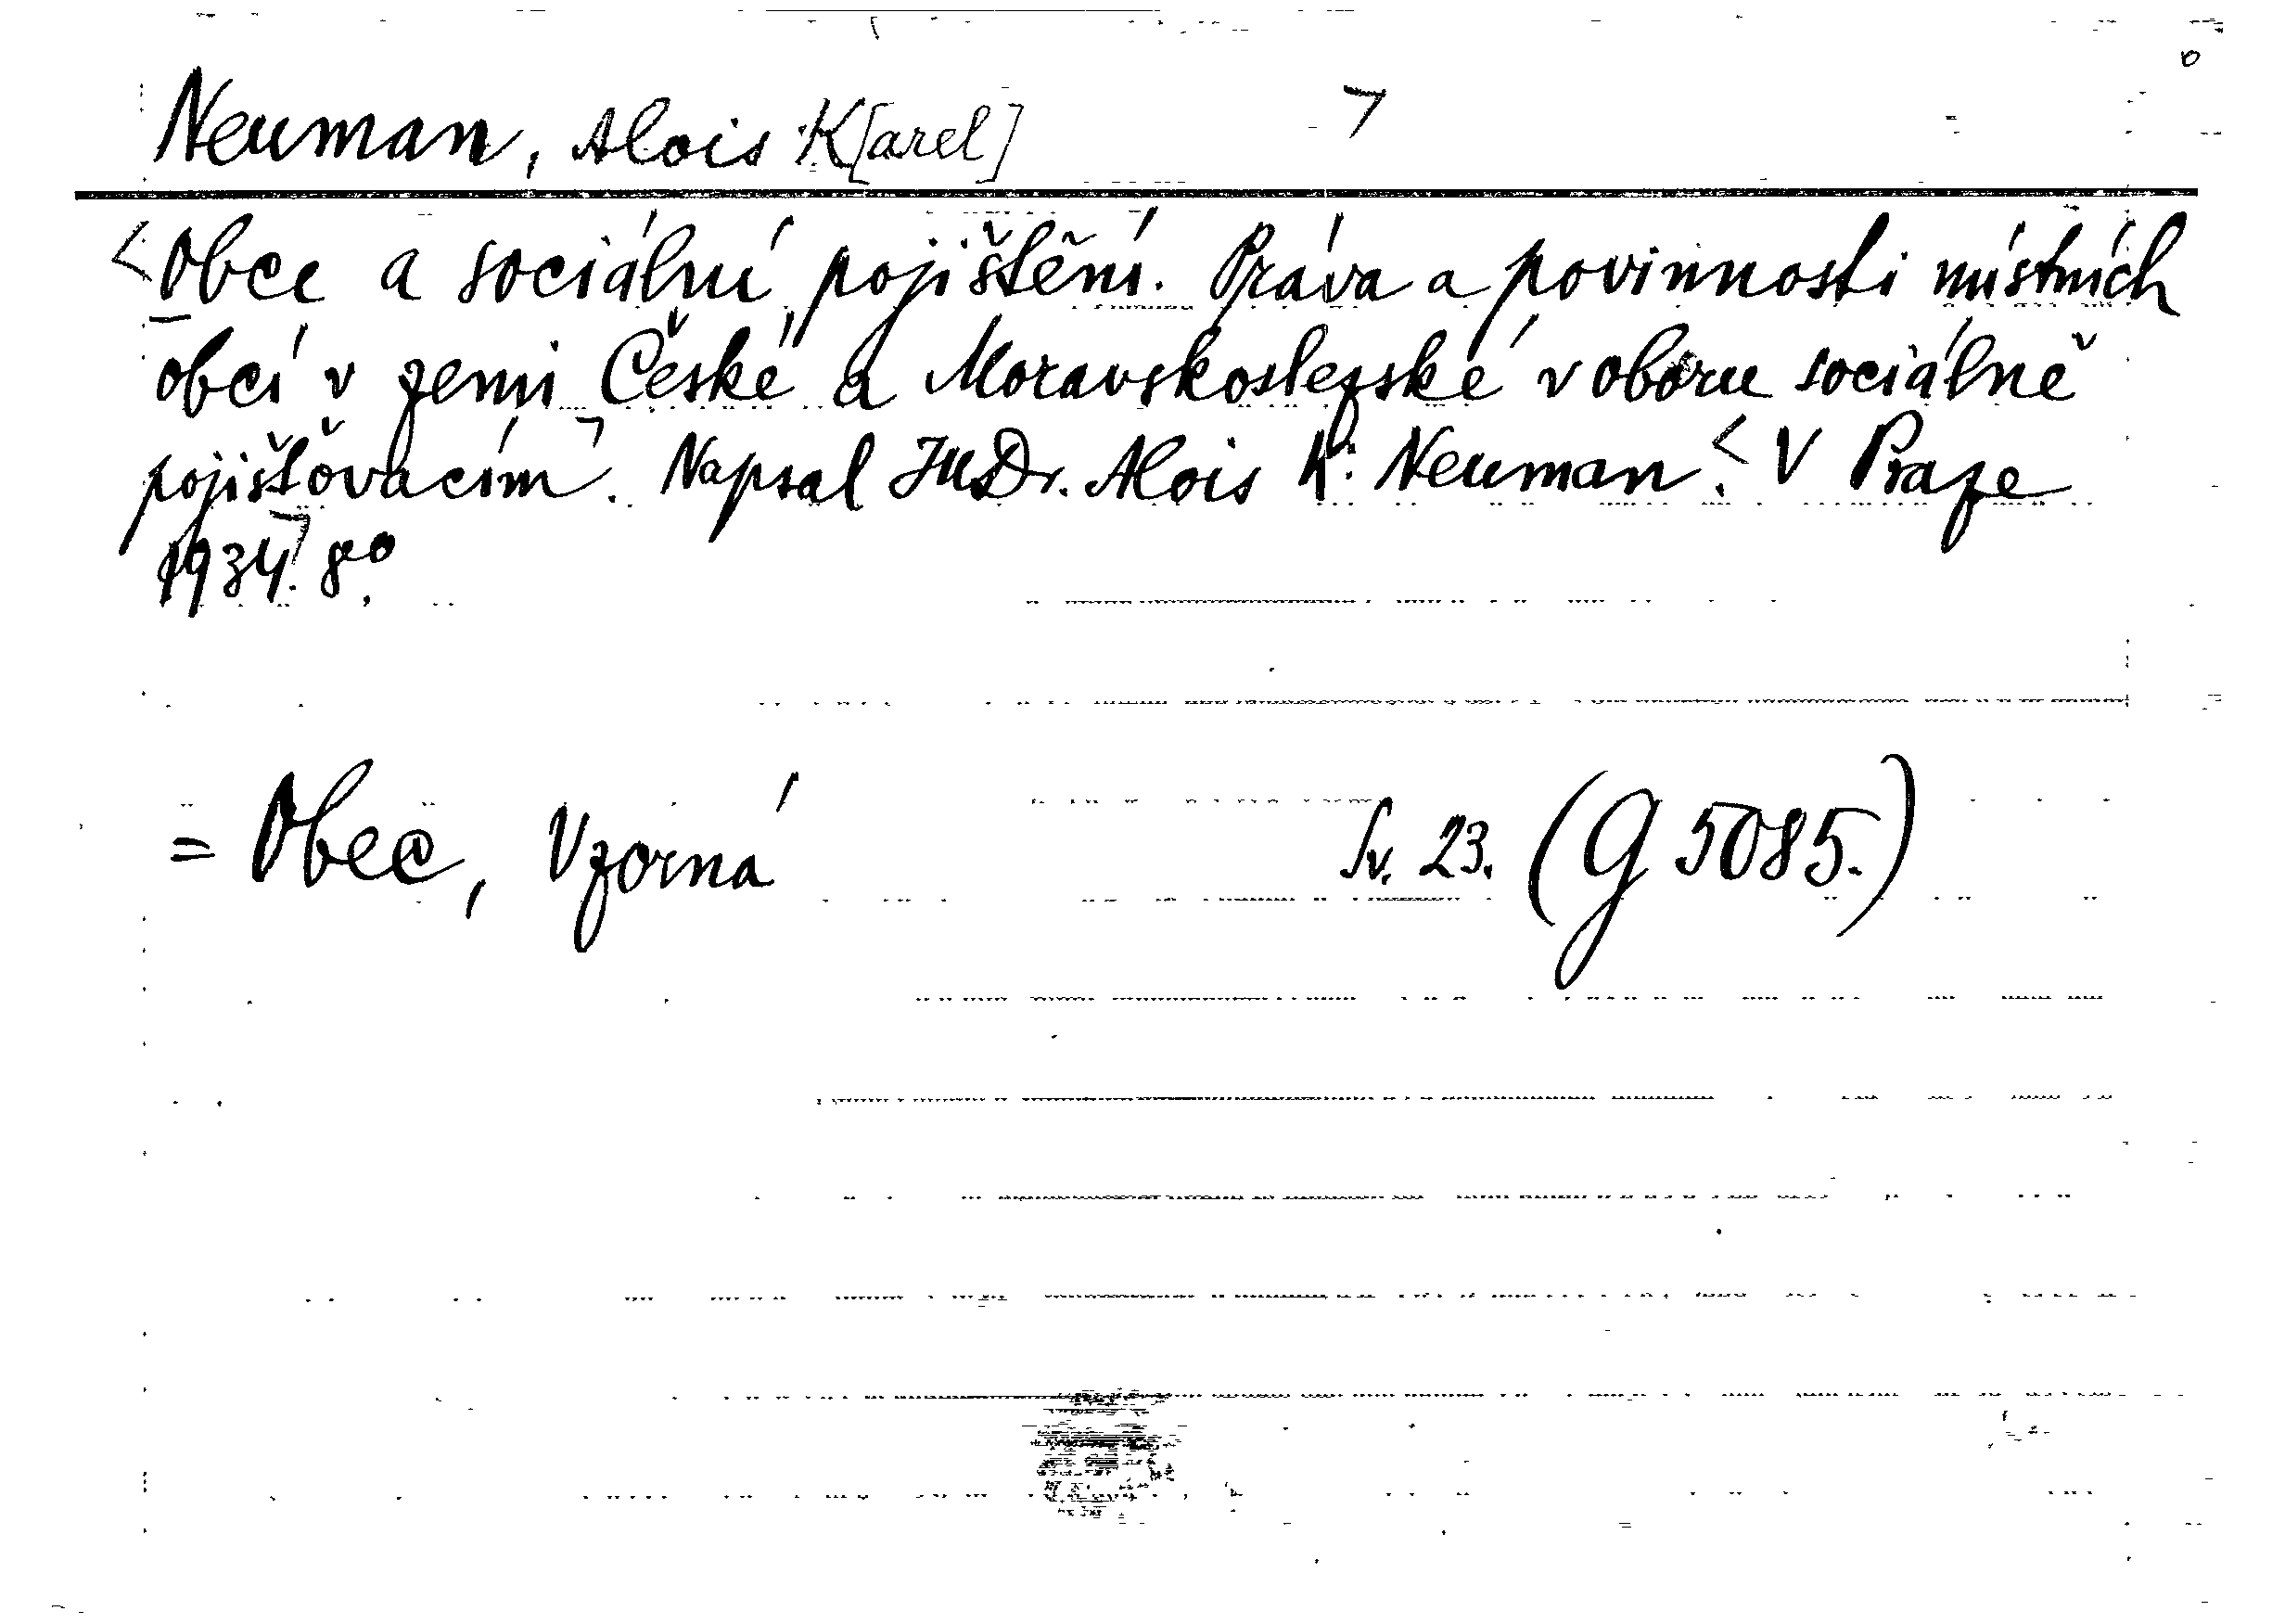 Neuman, Alois K[arel] ㄱ
<Obce a sociální pojištění. Práva a povinnosti místních
obcí v zemi České a Moravskoslezské v oboru sociálně
pojišťovacím ㄱ. Napsal JUDr. Alois K. Neuman.< V Praze
1934 ㄱ. 8°.
= Obec, Vzorná Sv. 23. (G 5085.)